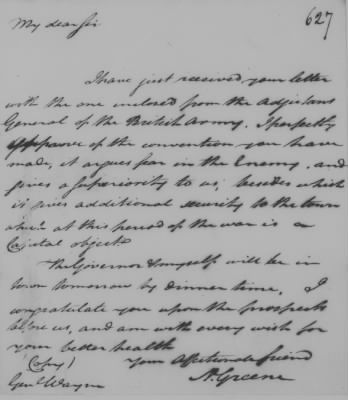 627
My dear sir
I have just received your letter
with the one inclosed from the Adjutant
General of the British Army. I perfectly
approve of the convention you have
made, it argues fear in the Enemy, and
gives a superiority to us, besides which
it gives additional security to the town
which at this period of the war is a
Capital object.
The Governor & myself will be in
town tomorrow by dinner time. I
congratulate you upon the prospects
before us, and am with every wish for
your better health
(Copy) Your Affectionate friend
Genl Wayne N. Greene